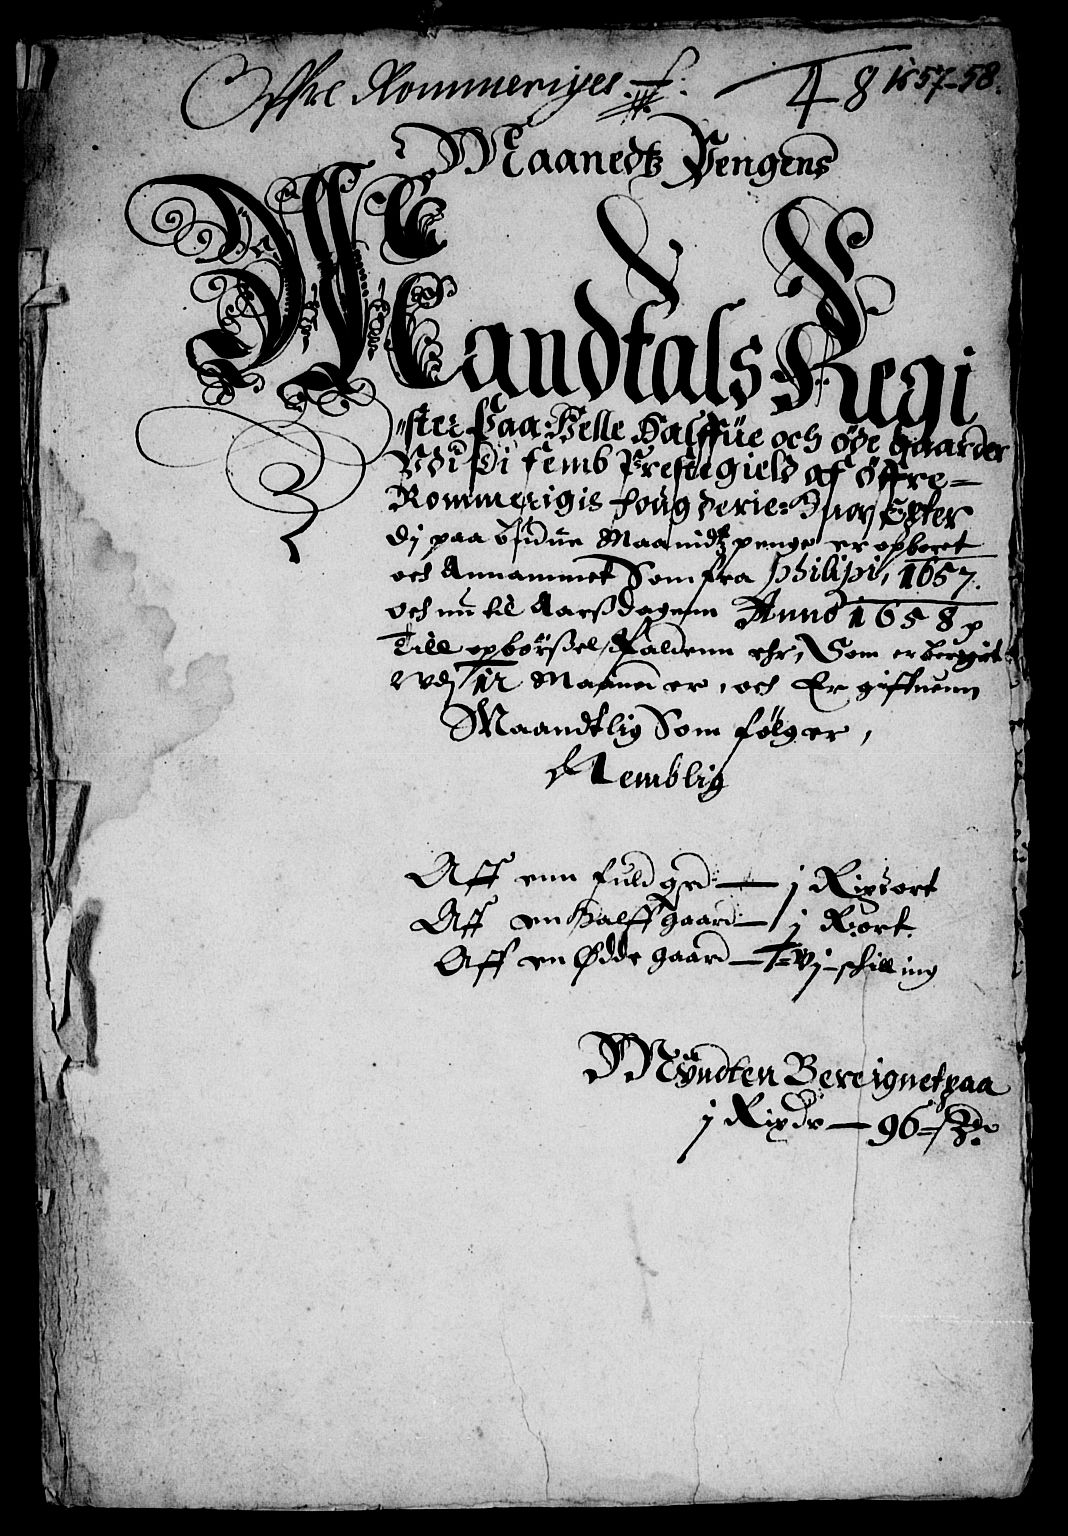 Øffre Rommeriges f. 48 1657-58.
Maanedtz Pengens
Mandtals Regi
ster Paa Helle Halffue och øde gaarder
Vdi di femb Prestegield af Øffre
Rommerigis fougderie: Huor Effter
di paa maanidtz penge er opboret
och Annammet Som fra Philipi, 1657.
och nu til Aarsdagenn Anno 1658
Till opbørsel faldenn ehr, Som er beregnet
vdj 12 Maaneder, och Er gifftuenn
Maandtlig Som følger,
Nemblig
Aff enn fuld grd: — j Rixort
Aff en Halff gaard — j R: ort.
Aff en Ødde gaard — vj skilling
Myndten Bereignet paa
j Rixdr — 96 sz